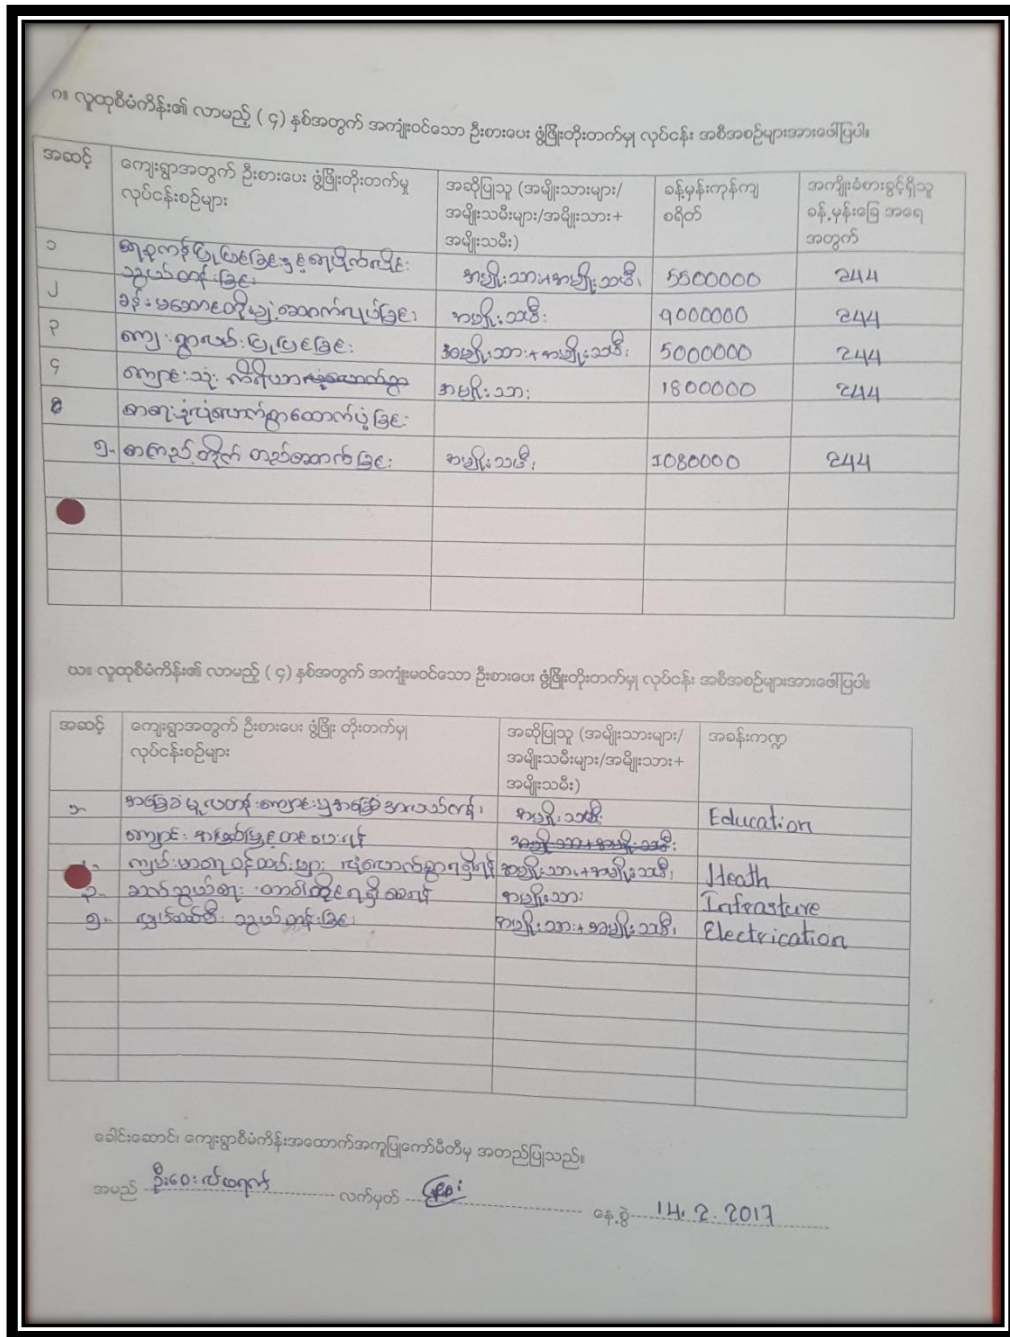 ဂ။ လူထုစီမံကိန်း၏ လာမည့် ( ၄ ) နှစ်အတွက် အကျုံးဝင်သော ဦးစားပေး ဖွံ့ဖြိုးတိုးတက်မှု လုပ်ငန်း အစီအစဉ်များအားဖော်ပြပါ။
အဆင့်
ကျေးရွာအတွက် ဦးစားပေး ဖွံ့ဖြိုးတိုးတက်မှု
လုပ်ငန်းစဉ်များ
အဆိုပြုသူ (အမျိုးသားများ/
အမျိုးသမီးများ/အမျိုးသား+
အမျိုးသမီး)
ခန့်မှန်းကုန်ကျ
စရိတ်
အကျိုးခံစားခွင့်ရှိသူ
ခန့်မှန်းခြေ အရေ
အတွက်
၁
ရေစုကန်ပြုပြင်ခြင်းနှင့်ရေပိုက်လိုင်း
သွယ်တန်းခြင်း အမျိုးသား+အမျိုးသမီး 5500000 244
၂ ခန်းမဆောင်တိုးချဲ့ဆောက်လုပ်ခြင်း အမျိုးသမီး 9000000 244
၃ ကျေးရွာလမ်းပြုပြင်ခြင်း အမျိုးသား+အမျိုးသမီး 5000000 244
၄ ကျောင်းသုံး ကိရိယာ အမျိုးသား 1800000 244
လုံလောက်စွာထောက်ပံ့ခြင်း
၅ စာကြည့်တိုက် တည်ဆောက်ခြင်း အမျိုးသမီး 1080000 244
ဃ။ လူထုစီမံကိန်း၏ လာမည့် ( ၄ ) နှစ်အတွက် အကျုံးမဝင်သော ဦးစားပေး ဖွံ့ဖြိုးတိုးတက်မှု လုပ်ငန်း အစီအစဉ်များအားဖော်ပြပါ။
အဆင့်
ကျေးရွာအတွက် ဦးစားပေး ဖွံ့ဖြိုး တိုးတက်မှု
လုပ်ငန်းစဉ်များ
အဆိုပြုသူ (အမျိုးသားများ/
အမျိုးသမီးများ/အမျိုးသား+
အမျိုးသမီး)
အခန်းကဏ္ဍ
၁ အခြေခံမူလတန်းကျောင်းမှအခြေခံအလယ်တန်း အမျိုးသမီး Education
ကျောင်း အဆင့်မြှင့်တင်ပေးရန် အမျိုးသား+အမျိုးသမီး
ကျန်းမာရေးဝန်ထမ်းများ လုံလောက်စွာရရှိရန် အမျိုးသား+အမျိုးသမီး Heath
၃ ဆက်သွယ်ရေး တာဝါတိုင်ရရှိစေရန် အမျိုးသား Infrasture
လျှပ်စစ်မီး သွယ်တန်းခြင်း အမျိုးသား+အမျိုးသမီး Electrication
ခေါင်းဆောင်၊ ကျေးရွာစီမံကိန်းအထောက်အကူပြုကော်မီတီမှ အတည်ပြုသည်။
အမည် လက်မှတ် နေ့စွဲ 14.2.2017